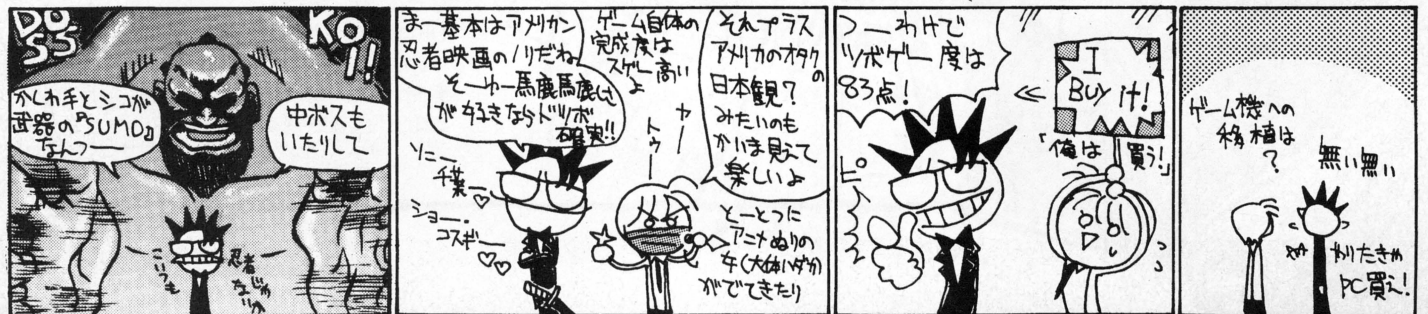 DO
SS
KO
I!!
かしわ手とシコが
武器の『SUMO』
なんつー
中ボスも
いたりして
こいつも
忍者
まー基本はアメリカン
忍者映画のノリだね
そーゆー馬鹿馬鹿しさ
が好きならドツボ
確実!!
ゲーム自体の
完成度は
スゲー高い
よ
それプラス
アメリカのオタクの
日本観?
みたいのも
かいま見えて
楽しいよ
ソニー
千葉ー♡
ショー・
コスギー
♡♡
トゥー
ヤー
とーとつに
アニメぬりの
女(大体ハダカ)
がでてきたり
つーわけで
ツボゲー度は
83点!
I
BUY it!
「俺は 買う!」
ゲーム機への
移植は
?
無い無い
やりたきゃ
PC買え!